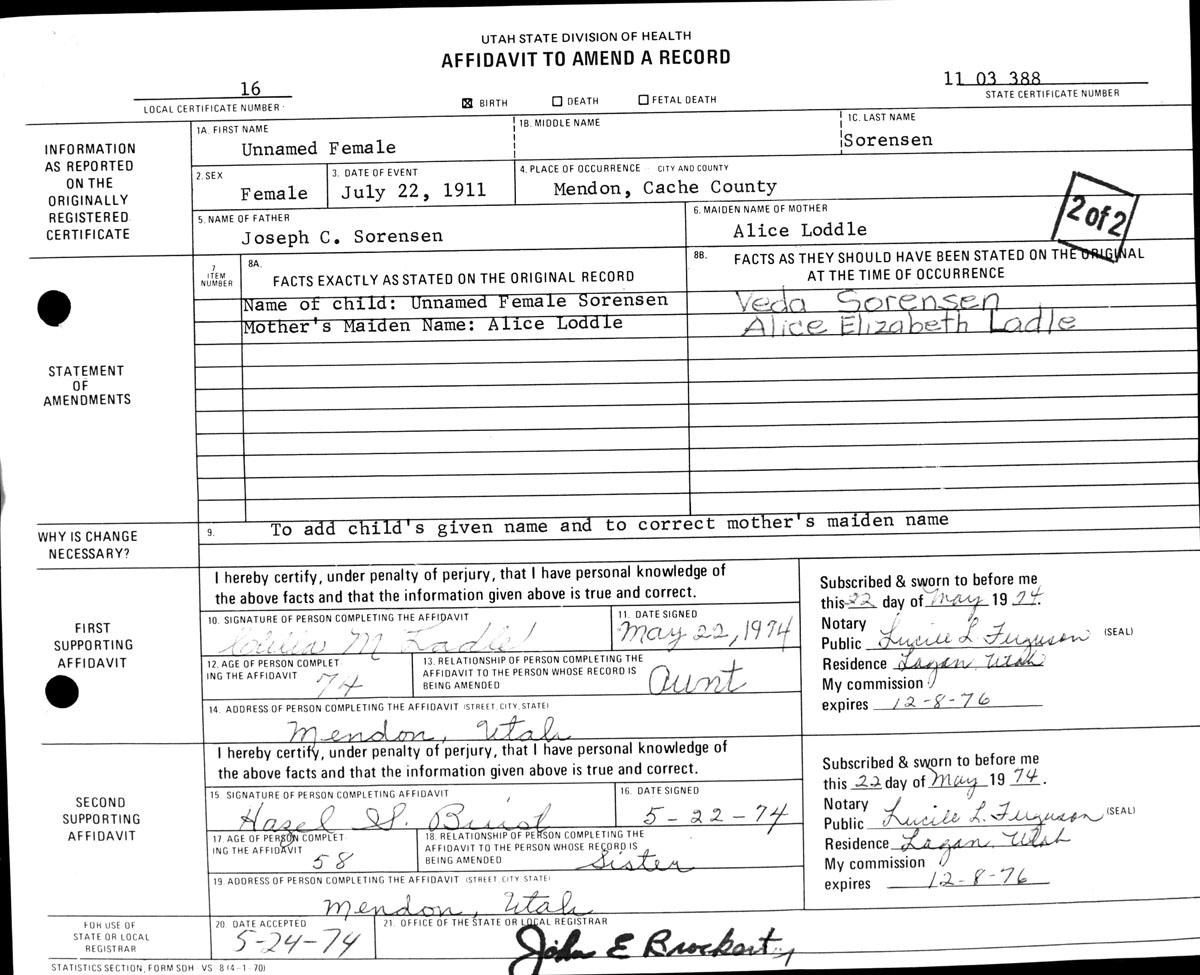 UTAH STATE DIVISION OF HEALTH
AFFIDAVIT TO AMEND A RECORD
16
LOCAL CERTIFICATE NUMBER
☒ BIRTH ☐ DEATH ☐ FETAL DEATH
11 03 388
STATE CERTIFICATE NUMBER
INFORMATION
AS REPORTED
ON THE
ORIGINALLY
REGISTERED
CERTIFICATE
1A. FIRST NAME
Unnamed Female
1B. MIDDLE NAME
1C. LAST NAME
Sorensen
2. SEX
Female
3. DATE OF EVENT
July 22, 1911
4. PLACE OF OCCURRENCE – CITY AND COUNTY
Mendon, Cache County
5. NAME OF FATHER
Joseph C. Sorensen
6. MAIDEN NAME OF MOTHER
Alice Loddle
2 of 2
STATEMENT
OF
AMENDMENTS
7
ITEM
NUMBER
8A.
FACTS EXACTLY AS STATED ON THE ORIGINAL RECORD
8B.
FACTS AS THEY SHOULD HAVE BEEN STATED ON THE ORIGINAL
AT THE TIME OF OCCURRENCE
Name of child: Unnamed Female Sorensen
Veda Sorensen
Mother's Maiden Name: Alice Loddle
Alice Elizabeth Ladle
WHY IS CHANGE
NECESSARY?
9.
To add child's given name and to correct mother's maiden name
FIRST
SUPPORTING
AFFIDAVIT
I hereby certify, under penalty of perjury, that I have personal knowledge of
the above facts and that the information given above is true and correct.
10. SIGNATURE OF PERSON COMPLETING THE AFFIDAVIT
M Ladle
11. DATE SIGNED
May 22, 1974
12. AGE OF PERSON COMPLET
ING THE AFFIDAVIT
74
13. RELATIONSHIP OF PERSON COMPLETING THE
AFFIDAVIT TO THE PERSON WHOSE RECORD IS
BEING AMENDED
Aunt
14. ADDRESS OF PERSON COMPLETING THE AFFIDAVIT (STREET, CITY, STATE)
Mendon, Utah
Subscribed & sworn to before me
this 22 day of May 19 74.
Notary
Public Lucile L. Ferguson (SEAL)
Residence Logan, Utah
My commission
expires 12-8-76
SECOND
SUPPORTING
AFFIDAVIT
I hereby certify, under penalty of perjury, that I have personal knowledge of
the above facts and that the information given above is true and correct.
15. SIGNATURE OF PERSON COMPLETING AFFIDAVIT
Hazel S. Buist
16. DATE SIGNED
5-22-74
17. AGE OF PERSON COMPLET
ING THE AFFIDAVIT
58
18. RELATIONSHIP OF PERSON COMPLETING THE
AFFIDAVIT TO THE PERSON WHOSE RECORD IS
BEING AMENDED
Sister
19. ADDRESS OF PERSON COMPLETING THE AFFIDAVIT (STREET, CITY, STATE)
Mendon, Utah
Subscribed & sworn to before me
this 22 day of May 19 74.
Notary
Public Lucile L. Ferguson (SEAL)
Residence Logan, Utah
My commission
expires 12-8-76
FOR USE OF
STATE OR LOCAL
REGISTRAR
20. DATE ACCEPTED
5-24-74
21. OFFICE OF THE STATE OR LOCAL REGISTRAR
John E Brockert
STATISTICS SECTION, FORM SDH - VS 8 (4-1-70)